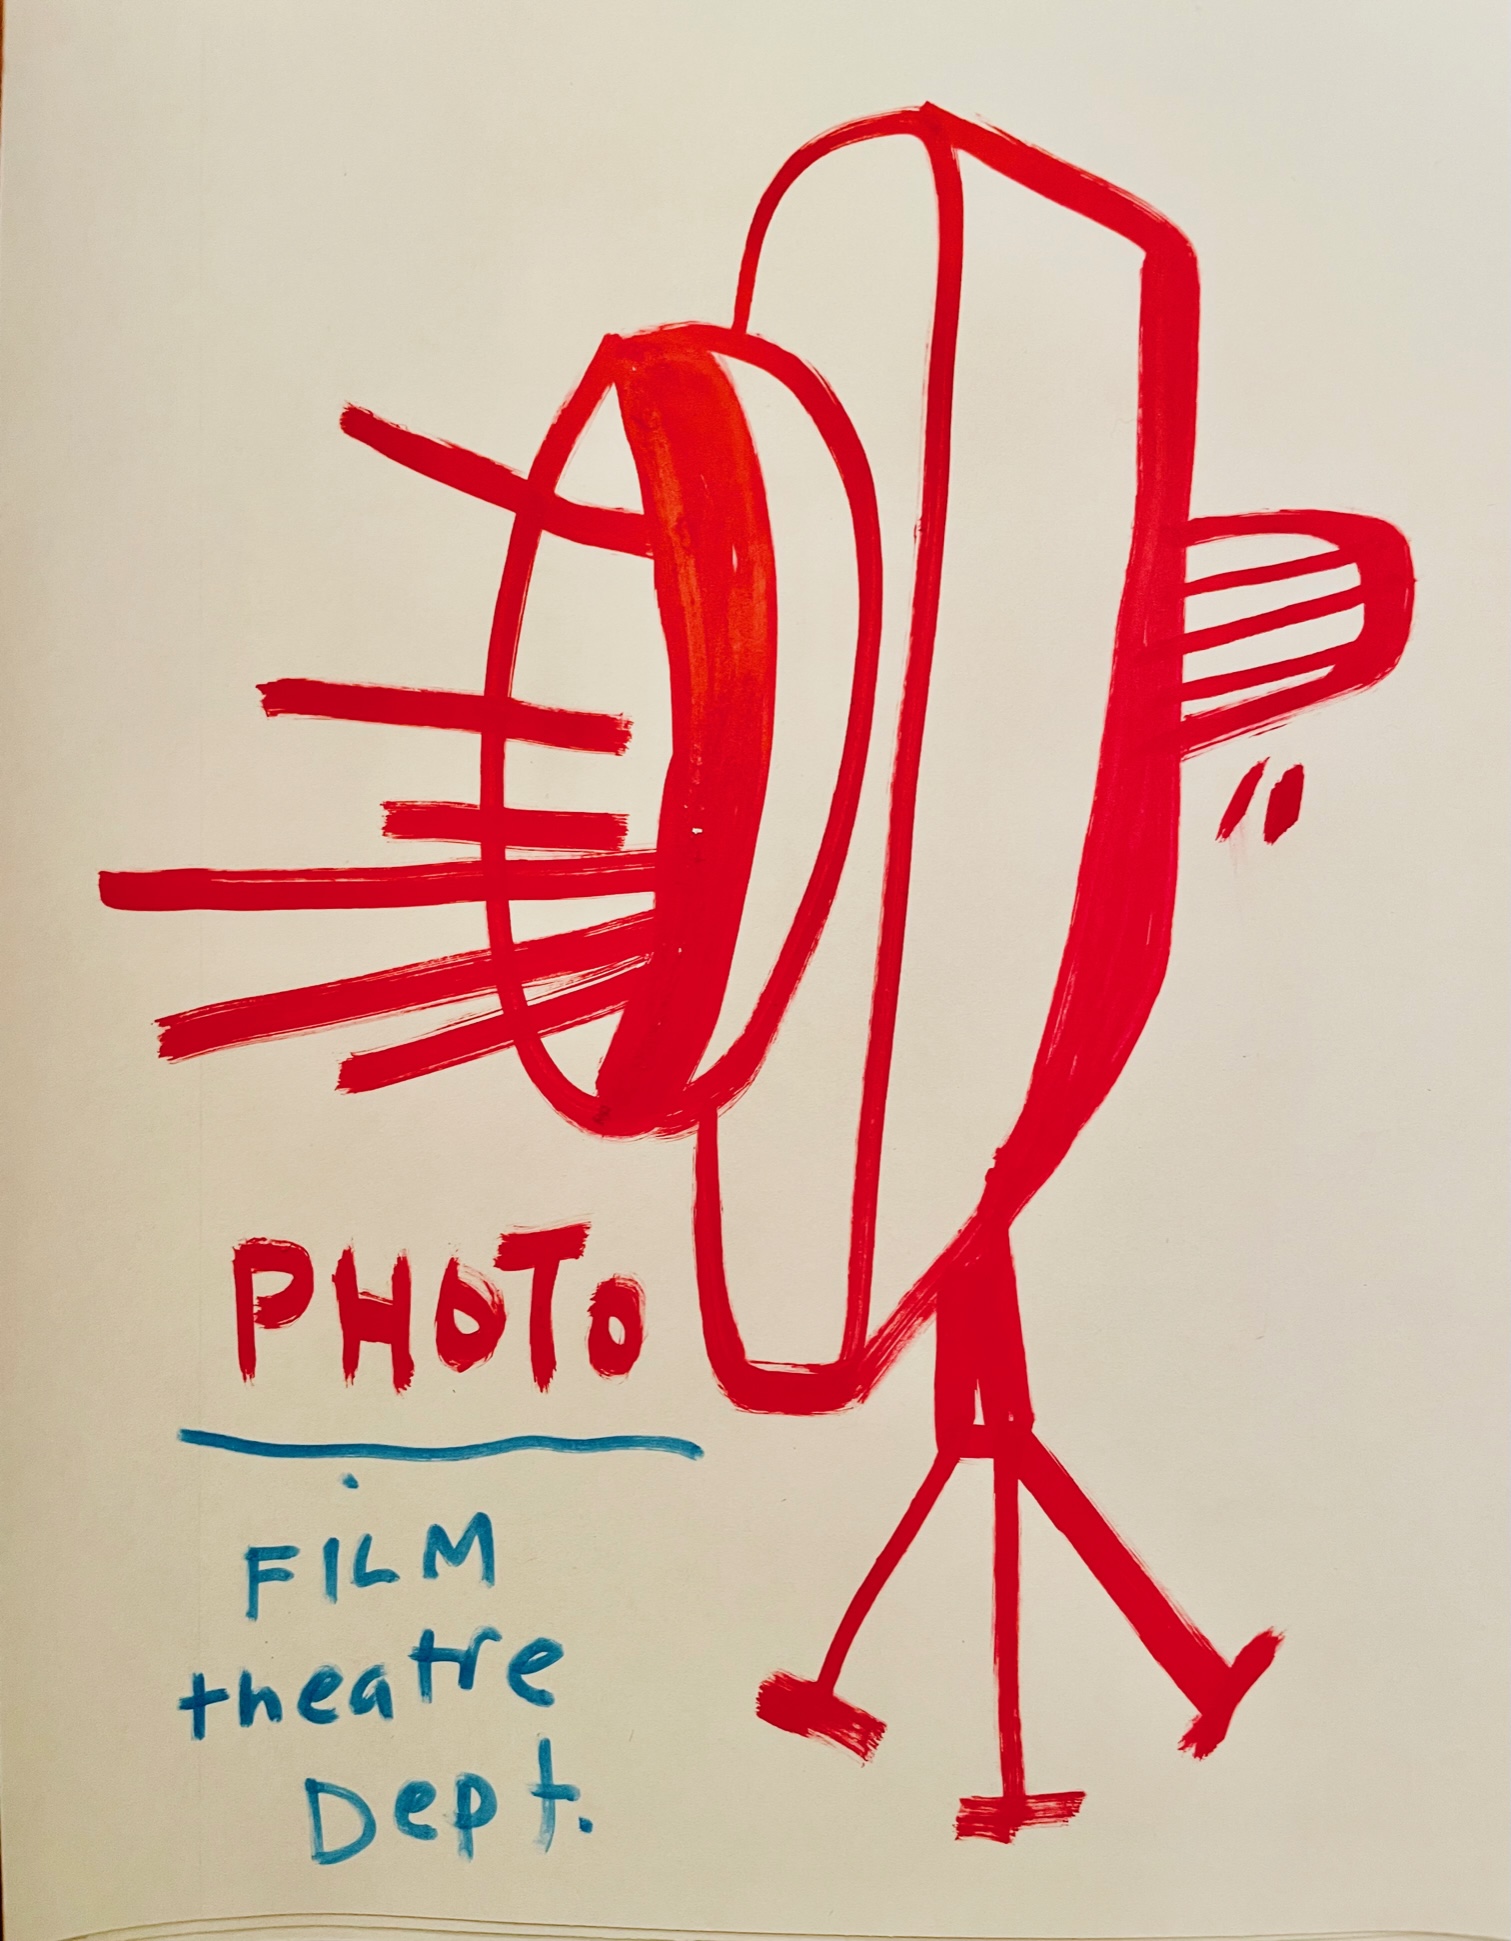 PHOTO
FILM
theatre
Dept.